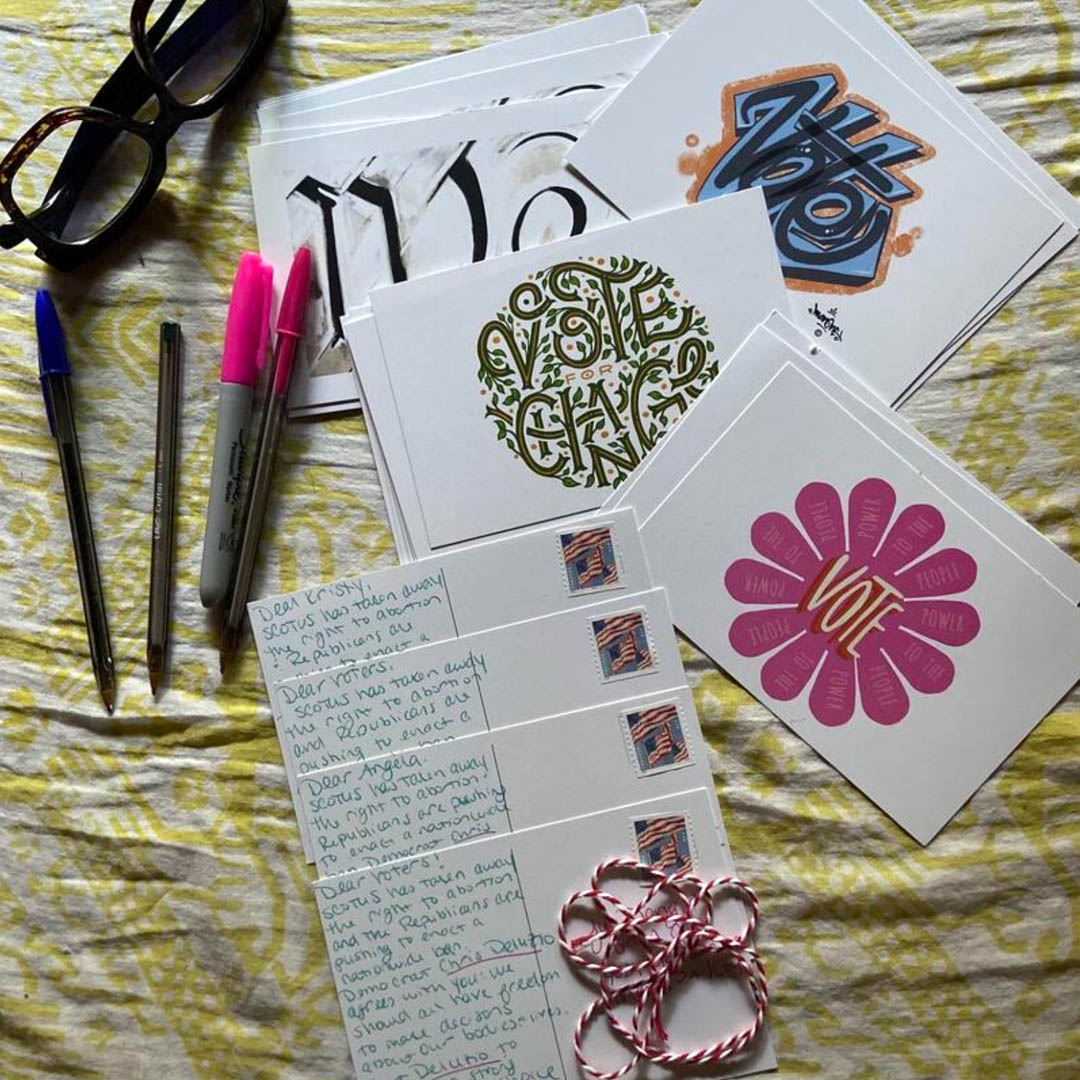 Vote
Vo
VOTE
FOR
CHANG
POWER
TO THE
PEOPLE
POWER
TO THE
PEOPLE
POWER
TO THE
PEOPLE
POWER
TO THE
PEOPLE
VOTE
Dear Cristy,
SCOTUS has taken away
the right to abortion
Republicans are
to enact a
Dear Voters,
SCOTUS has taken away
the right to abortion
and Republicans are
pushing to enact a
Dear Angela,
SCOTUS has taken away
the right to abortion.
Republicans are pushing
to enact a nationwide
ban. Democrat Chris
Dear Voters,
SCOTUS has taken away
the right to abortion
and the Republicans are
pushing to enact a
nationwide ban.
Democrat Chris Deluzio
agrees with you: we
should all have freedom
to make decisons
about our bodies + lives.
Deluzio to
strong